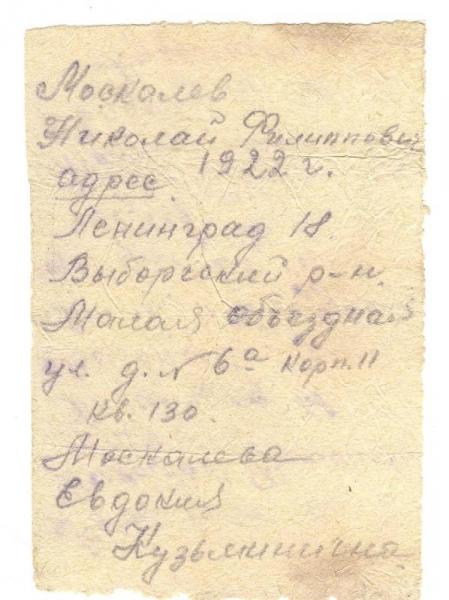 Москалев
Николай Филиппович
1922 г.
адрес
Ленинград 18.
Выборгский р-н.
Малая Объездная
ул. д. № 6а корп. 11
кв. 130.
Москалева
Евдокия
Кузьминична